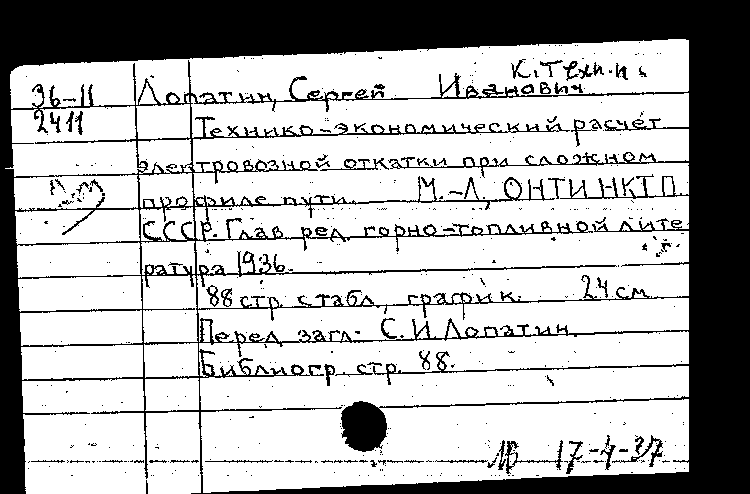 К.Техн.н.
36-11 Лопатин, Сергей Иванович
2411 Технико-экономический расчет
электровозной откатки при сложном
профиле пути. М.-Л., ОНТИ НКТП
СССР. Глав. ред. горно-топливной лите
ратура 1936.
88 стр. с табл., график. 24 см
Перед загл.: С. И. Лопатин.
Библиогр. стр. 88.
17-4-37